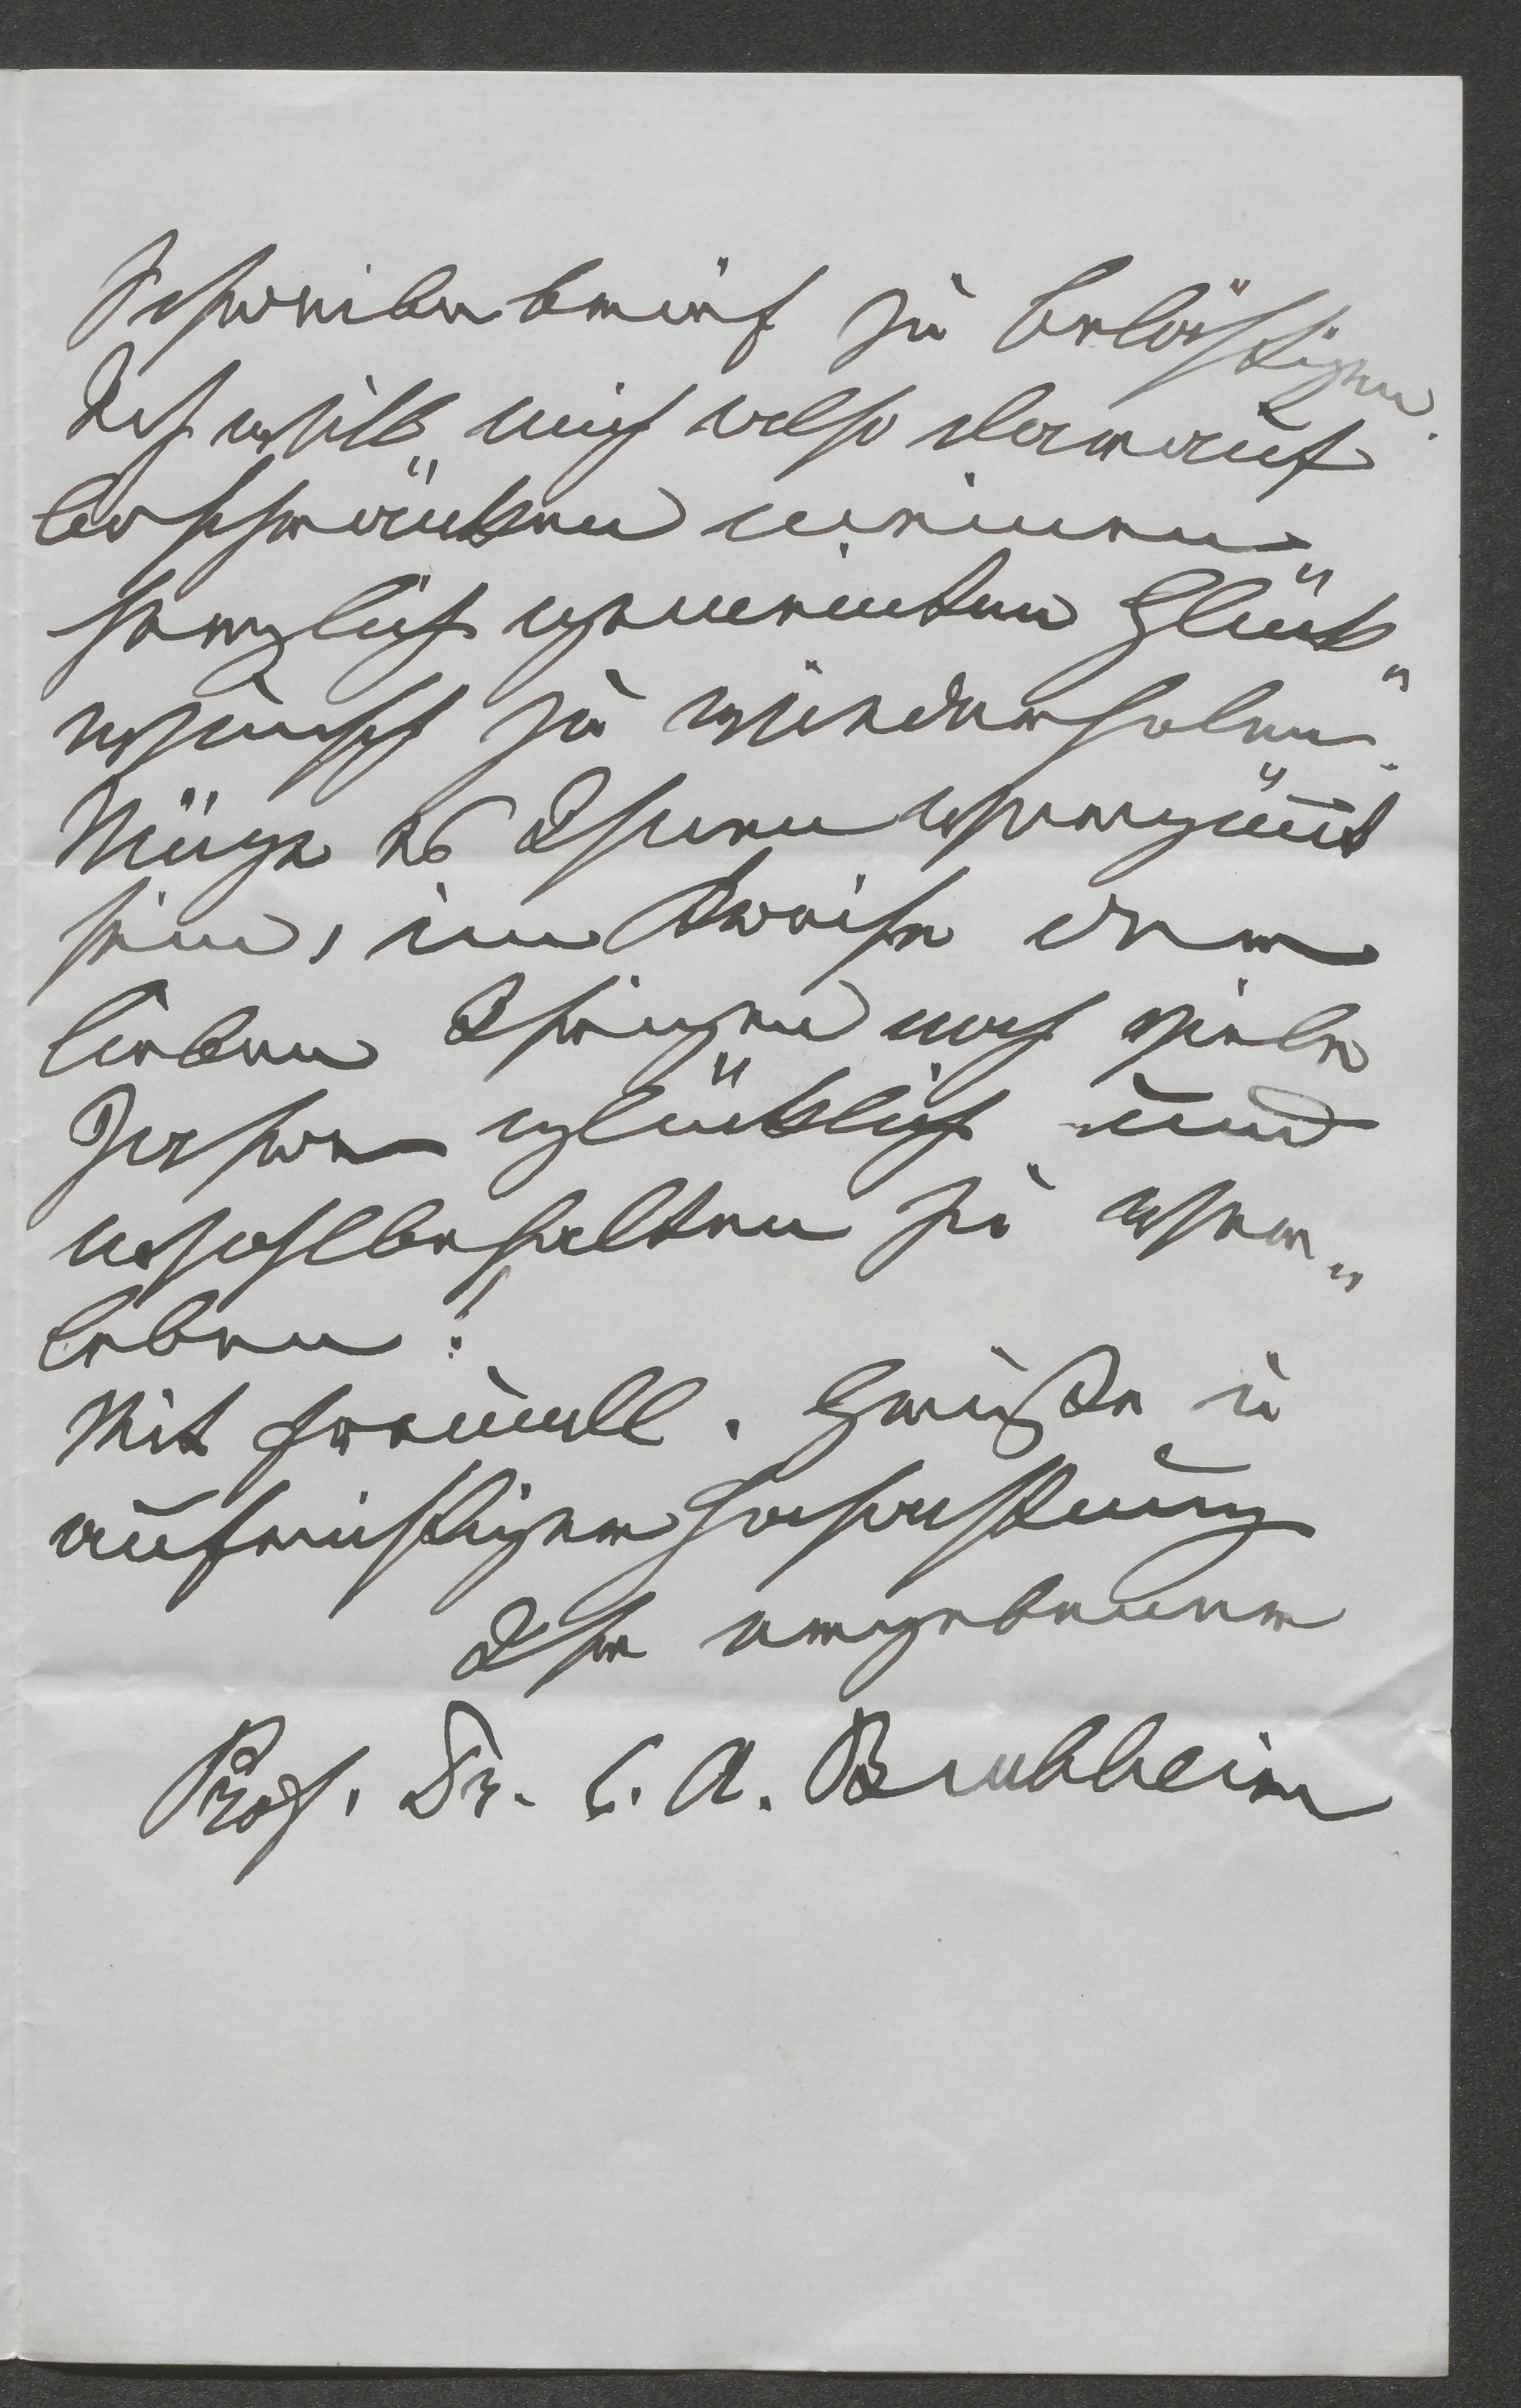 Schreibebrief zu belästigen.
Ich will mich also darauf
beschränken meinen
herzlich gemeinten Glück„
wunsch zu wiederholen.
Möge es Ihnen vergönnt
sein, im Kreise der
lieben Ihrigen noch viele
Jahre glücklich und
wohlbehalten zu ver„
leben!
Mit freundl. Grüße u
aufrichtiger Hochachtung
Ihr ergebener
Prof. Dr. C. A. Buchheim